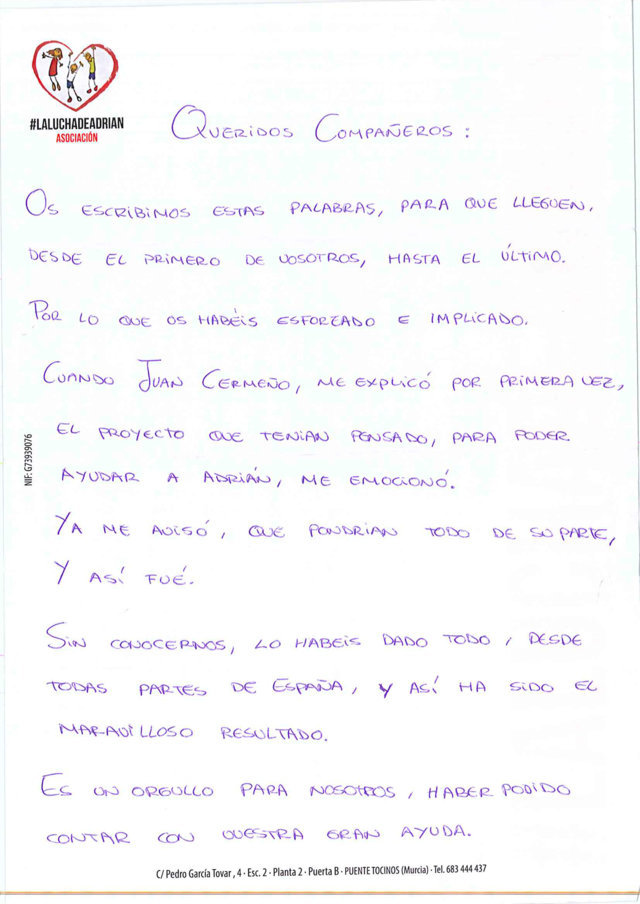 #LALUCHADEADRIAN
ASOCIACIÓN
QUERIDOS COMPAÑEROS:
OS ESCRIBIMOS ESTAS PALABRAS, PARA QUE LLEGUEN,
DESDE EL PRIMERO DE VOSOTROS, HASTA EL ÚLTIMO.
POR LO QUE OS HABÉIS ESFORZADO E IMPLICADO.
CUANDO JUAN CERMEÑO, ME EXPLICÓ POR PRIMERA VEZ,
EL PROYECTO QUE TENIAN PENSADO, PARA PODER
AYUDAR A ADRIÁN, ME EMOCIONÓ.
YA ME AVISÓ, QUE PONDRIAN TODO DE SU PARTE,
Y ASÍ FUÉ.
SIN CONOCERNOS, LO HABEIS DADO TODO, DESDE
TODAS PARTES DE ESPAÑA, Y ASÍ HA SIDO EL
MARAVILLOSO RESULTADO.
ES UN ORGULLO PARA NOSOTROS, HABER PODIDO
CONTAR CON VUESTRA GRAN AYUDA.
NIF: G73939076
C/ Pedro García Tovar, 4 - Esc. 2 - Planta 2 - Puerta B - PUENTE TOCINOS (Murcia) - Tel. 683 444 437